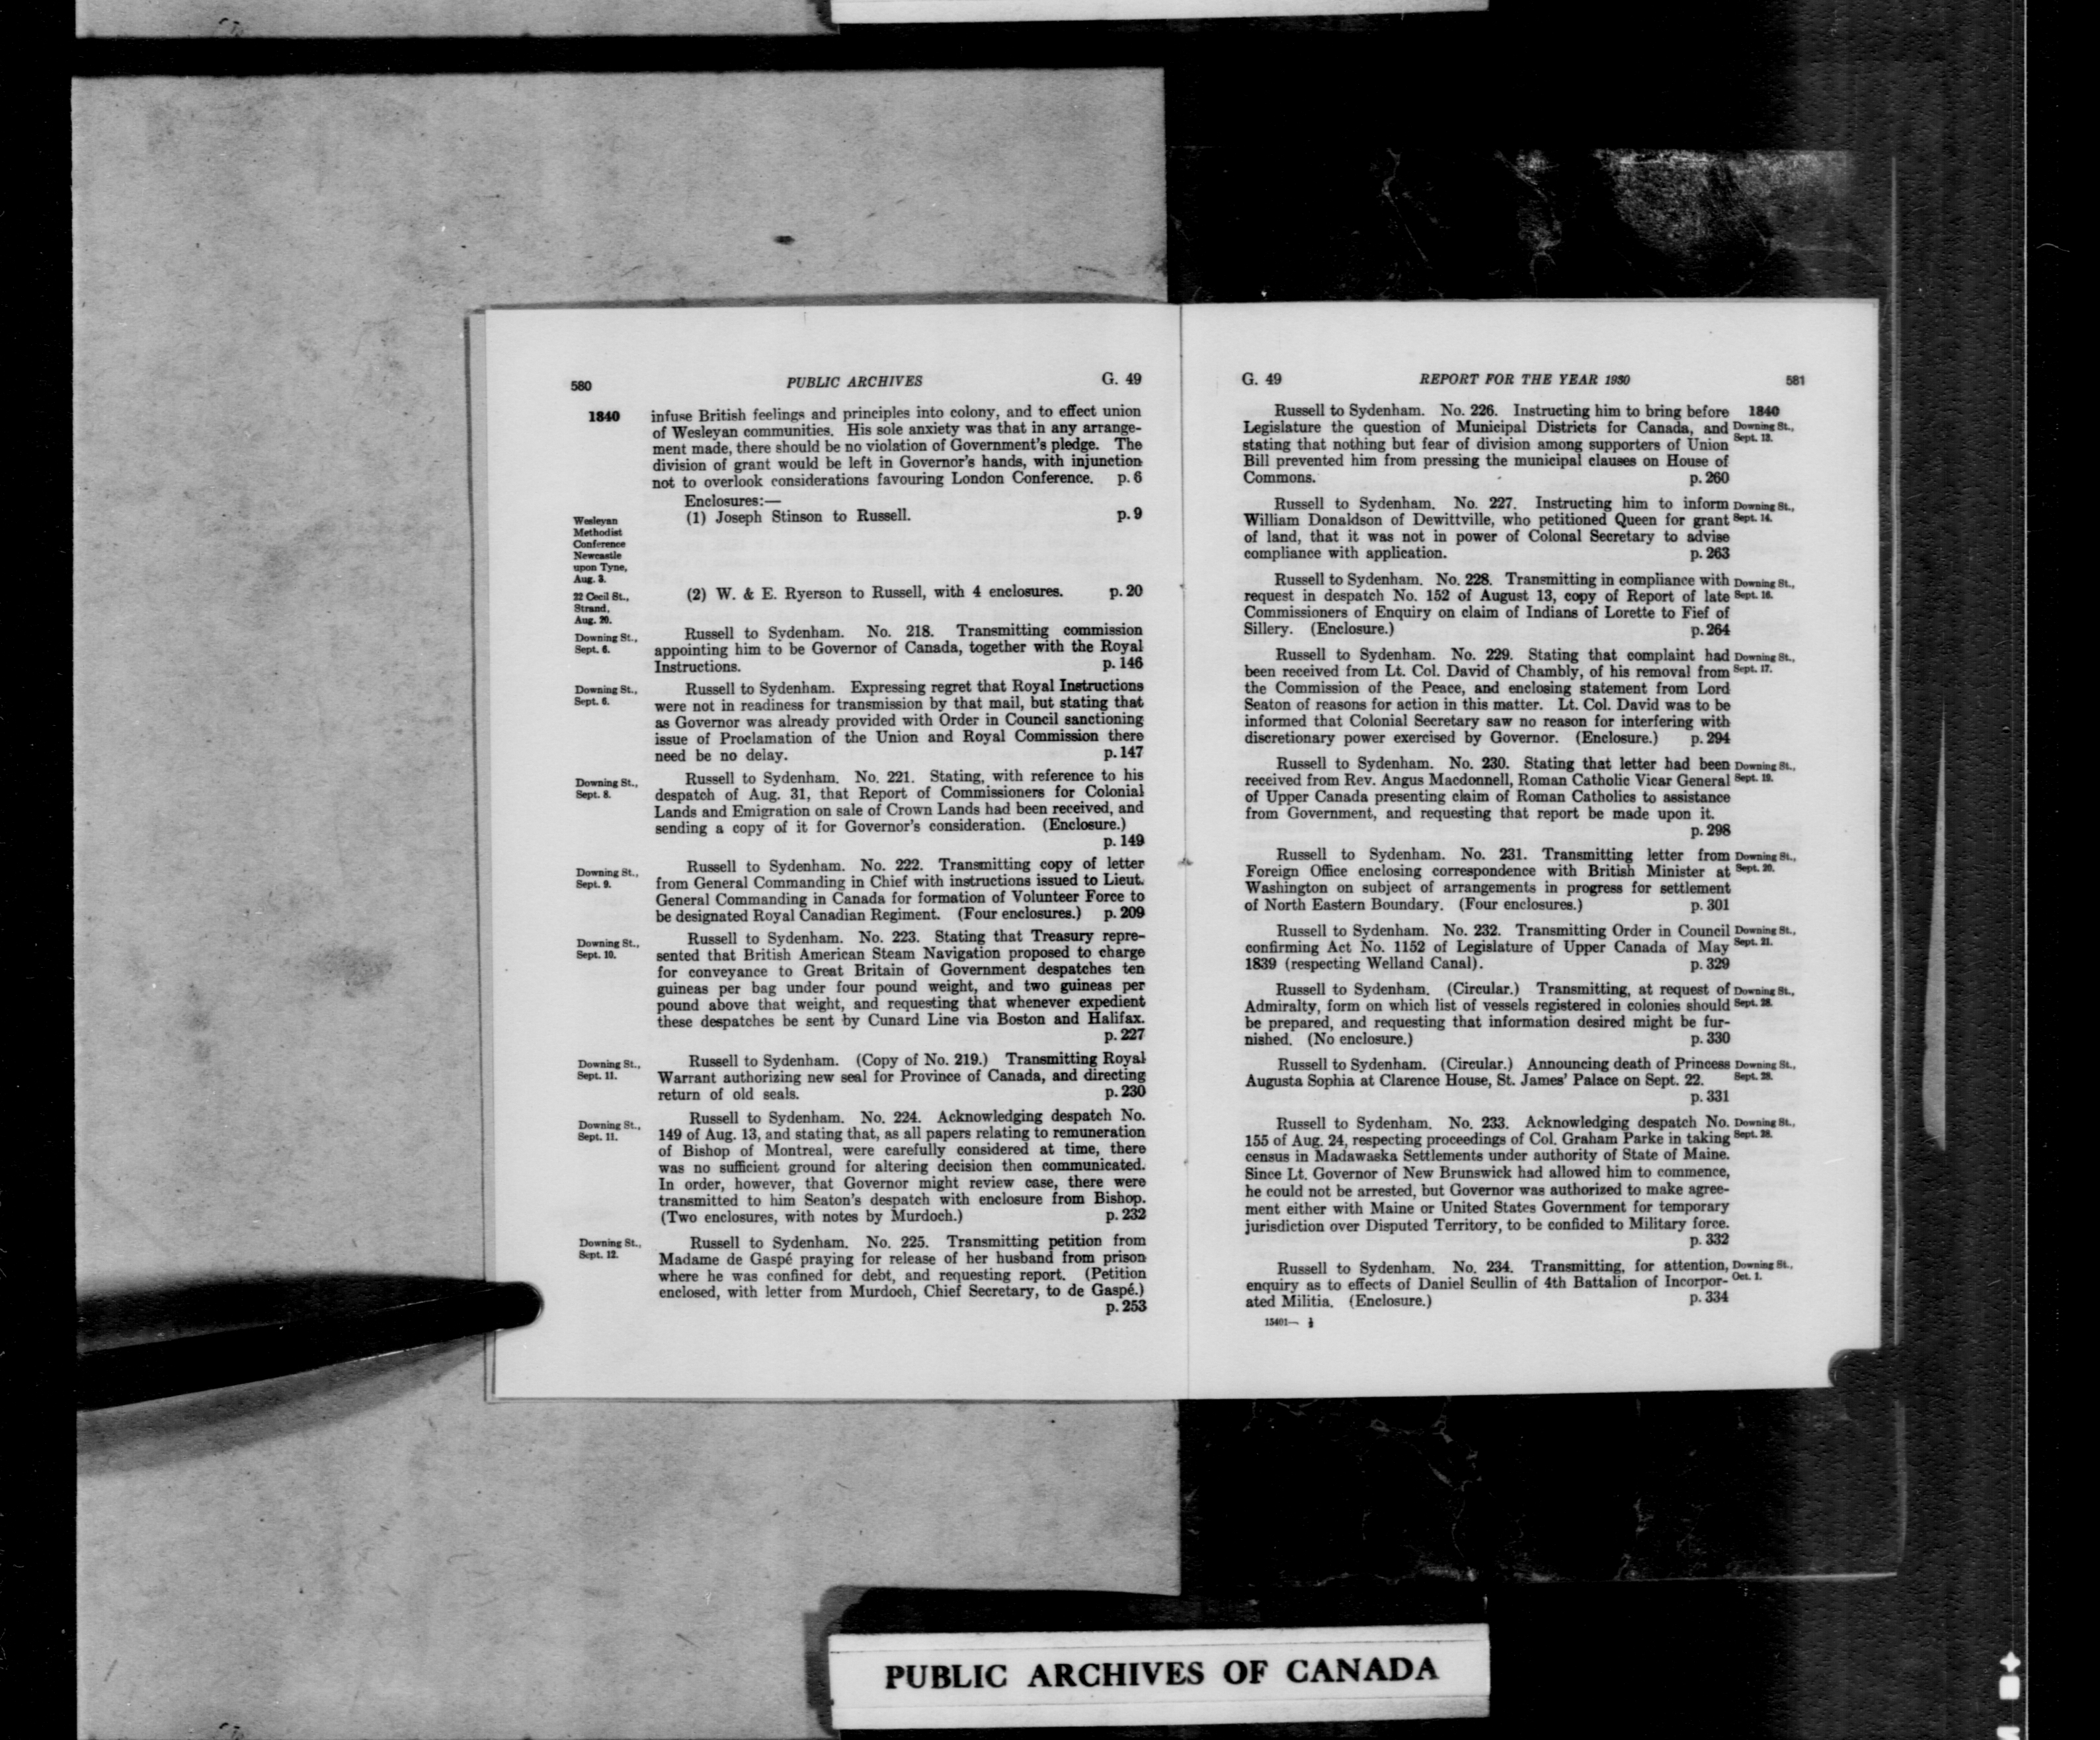 580 PUBLIC ARCHIVES G. 49
1840 infuse British feelings and principles into colony, and to effect union
of Wesleyan communities. His sole anxiety was that in any arrange-
ment made, there should be no violation of Government's pledge. The
division of grant would be left in Governor's hands, with injunction
not to overlook considerations favouring London Conference. p. 6
Enclosures:—
Wesleyan
Methodist
Conference
Newcastle
upon Tyne,
Aug. 3.
(1) Joseph Stinson to Russell. p. 9
22 Cecil St.,
Strand,
Aug. 20.
(2) W. & E. Ryerson to Russell, with 4 enclosures. p. 20
Downing St.,
Sept. 6.
Russell to Sydenham. No. 218. Transmitting commission
appointing him to be Governor of Canada, together with the Royal
Instructions. p. 146
Downing St.,
Sept. 6.
Russell to Sydenham. Expressing regret that Royal Instructions
were not in readiness for transmission by that mail, but stating that
as Governor was already provided with Order in Council sanctioning
issue of Proclamation of the Union and Royal Commission there
need be no delay. p. 147
Downing St.,
Sept. 8.
Russell to Sydenham. No. 221. Stating, with reference to his
despatch of Aug. 31, that Report of Commissioners for Colonial
Lands and Emigration on sale of Crown Lands had been received, and
sending a copy of it for Governor's consideration. (Enclosure.)
p. 149
Downing St.,
Sept. 9.
Russell to Sydenham. No. 222. Transmitting copy of letter
from General Commanding in Chief with instructions issued to Lieut.
General Commanding in Canada for formation of Volunteer Force to
be designated Royal Canadian Regiment. (Four enclosures.) p. 209
Downing St.,
Sept. 10.
Russell to Sydenham. No. 223. Stating that Treasury repre-
sented that British American Steam Navigation proposed to charge
for conveyance to Great Britain of Government despatches ten
guineas per bag under four pound weight, and two guineas per
pound above that weight, and requesting that whenever expedient
these despatches be sent by Cunard Line via Boston and Halifax.
p. 227
Downing St.,
Sept. 11.
Russell to Sydenham. (Copy of No. 219.) Transmitting Royal
Warrant authorizing new seal for Province of Canada, and directing
return of old seals. p. 230
Downing St.,
Sept. 11.
Russell to Sydenham. No. 224. Acknowledging despatch No.
149 of Aug. 13, and stating that, as all papers relating to remuneration
of Bishop of Montreal, were carefully considered at time, there
was no sufficient ground for altering decision then communicated.
In order, however, that Governor might review case, there were
transmitted to him Seaton's despatch with enclosure from Bishop.
(Two enclosures, with notes by Murdoch.) p. 232
Downing St.,
Sept. 12.
Russell to Sydenham. No. 225. Transmitting petition from
Madame de Gaspé praying for release of her husband from prison
where he was confined for debt, and requesting report. (Petition
enclosed, with letter from Murdoch, Chief Secretary, to de Gaspé.)
p. 253
G. 49 REPORT FOR THE YEAR 1930 581
1840
Russell to Sydenham. No. 226. Instructing him to bring before
Legislature the question of Municipal Districts for Canada, and
stating that nothing but fear of division among supporters of Union
Bill prevented him from pressing the municipal clauses on House of
Commons. p. 260
Downing St.,
Sept. 13.
Russell to Sydenham. No. 227. Instructing him to inform
William Donaldson of Dewittville, who petitioned Queen for grant
of land, that it was not in power of Colonal Secretary to advise
compliance with application. p. 263
Downing St.,
Sept. 14.
Russell to Sydenham. No. 228. Transmitting in compliance with
request in despatch No. 152 of August 13, copy of Report of late
Commissioners of Enquiry on claim of Indians of Lorette to Fief of
Sillery. (Enclosure.) p. 264
Downing St.,
Sept. 16.
Russell to Sydenham. No. 229. Stating that complaint had
been received from Lt. Col. David of Chambly, of his removal from
the Commission of the Peace, and enclosing statement from Lord
Seaton of reasons for action in this matter. Lt. Col. David was to be
informed that Colonial Secretary saw no reason for interfering with
discretionary power exercised by Governor. (Enclosure.) p. 294
Downing St.,
Sept. 17.
Russell to Sydenham. No. 230. Stating that letter had been
received from Rev. Angus Macdonnell, Roman Catholic Vicar General
of Upper Canada presenting claim of Roman Catholics to assistance
from Government, and requesting that report be made upon it.
p. 298
Downing St.,
Sept. 19.
Russell to Sydenham. No. 231. Transmitting letter from
Foreign Office enclosing correspondence with British Minister at
Washington on subject of arrangements in progress for settlement
of North Eastern Boundary. (Four enclosures.) p. 301
Downing St.,
Sept. 20.
Russell to Sydenham. No. 232. Transmitting Order in Council
confirming Act No. 1152 of Legislature of Upper Canada of May
1839 (respecting Welland Canal). p. 329
Downing St.,
Sept. 21.
Russell to Sydenham. (Circular.) Transmitting, at request of
Admiralty, form on which list of vessels registered in colonies should
be prepared, and requesting that information desired might be fur-
nished. (No enclosure.) p. 330
Downing St.,
Sept. 28.
Russell to Sydenham. (Circular.) Announcing death of Princess
Augusta Sophia at Clarence House, St. James' Palace on Sept. 22.
p. 331
Downing St.,
Sept. 28.
Russell to Sydenham. No. 233. Acknowledging despatch No.
155 of Aug. 24, respecting proceedings of Col. Graham Parke in taking
census in Madawaska Settlements under authority of State of Maine.
Since Lt. Governor of New Brunswick had allowed him to commence,
he could not be arrested, but Governor was authorized to make agree-
ment either with Maine or United States Government for temporary
jurisdiction over Disputed Territory, to be confided to Military force.
p. 332
Downing St.,
Sept. 28.
Russell to Sydenham. No. 234. Transmitting, for attention,
enquiry as to effects of Daniel Scullin of 4th Battalion of Incorpor-
ated Militia. (Enclosure.) p. 334
Downing St.,
Oct. 1.
15401—
PUBLIC ARCHIVES OF CANADA